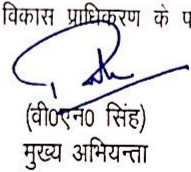 विकास प्राधिकरण के
(वी0एन0 सिंह)
मुख्य अभियन्ता